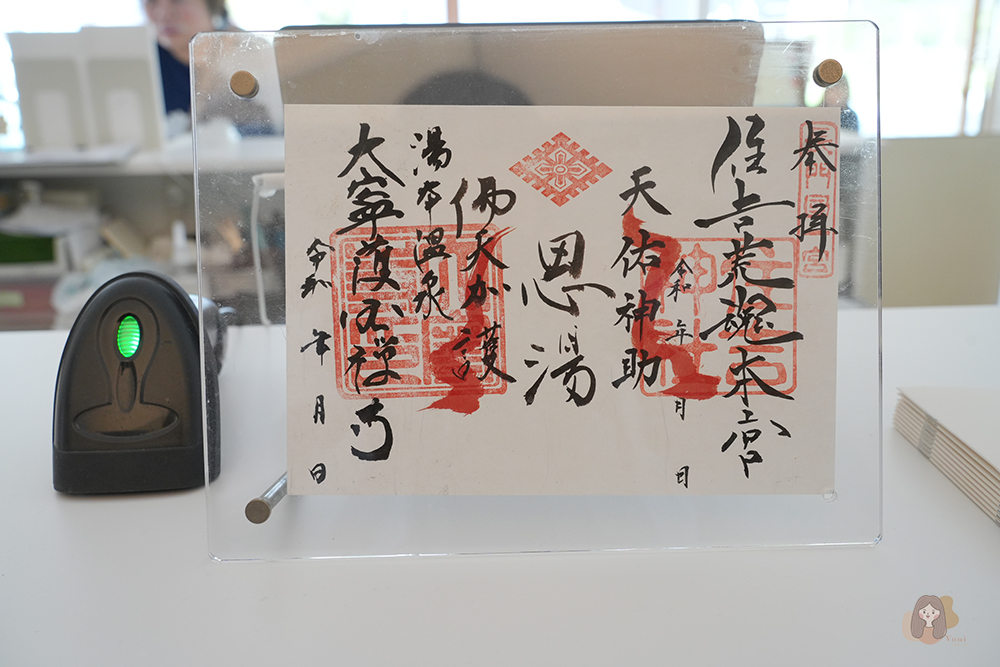 奉拝
住吉荒魂本宮
令和 年 月 日
天佑神助
恩湯
佛天加護
湯本温泉
大寧護国禅寺
令和 年 月 日